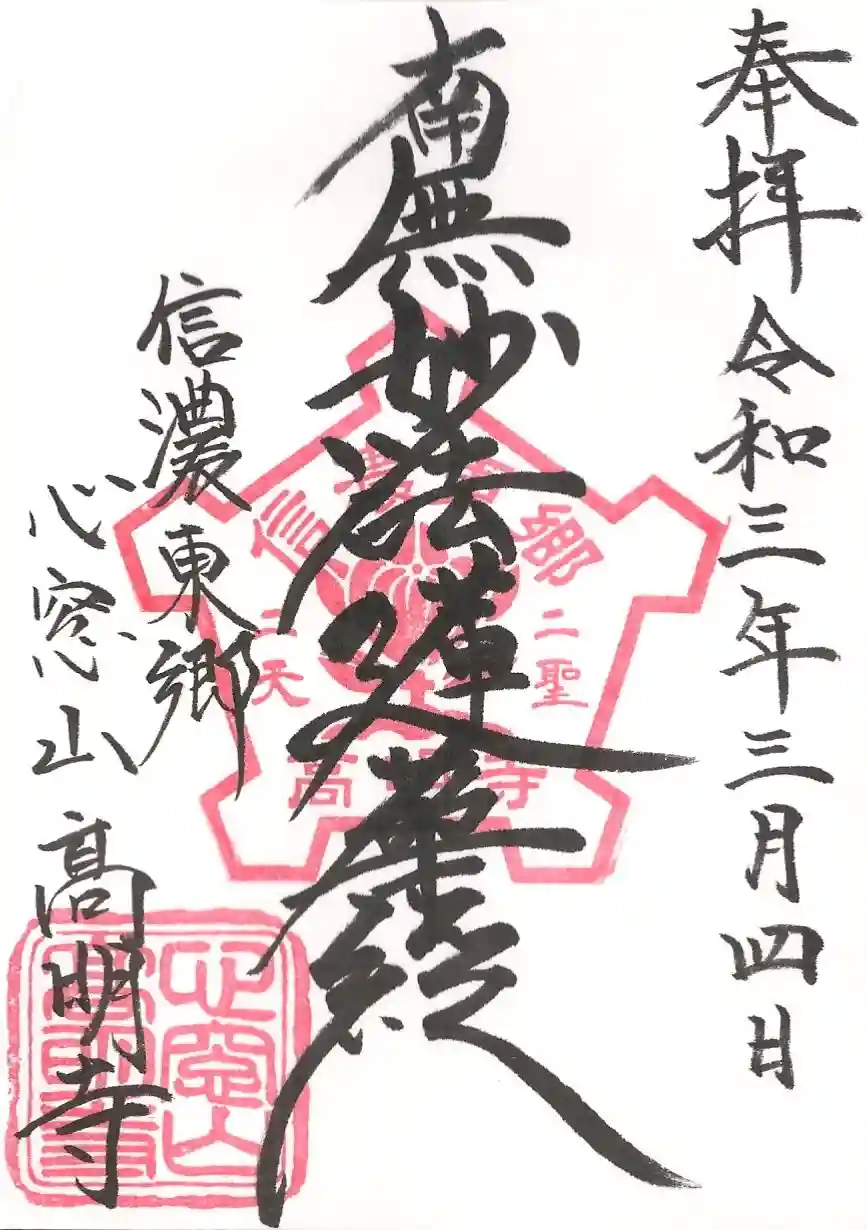 奉拝 令和三年三月四日
南無妙法蓮華経
信濃東郷
心窓山 高明寺
二聖
二天
心窓山
高明寺